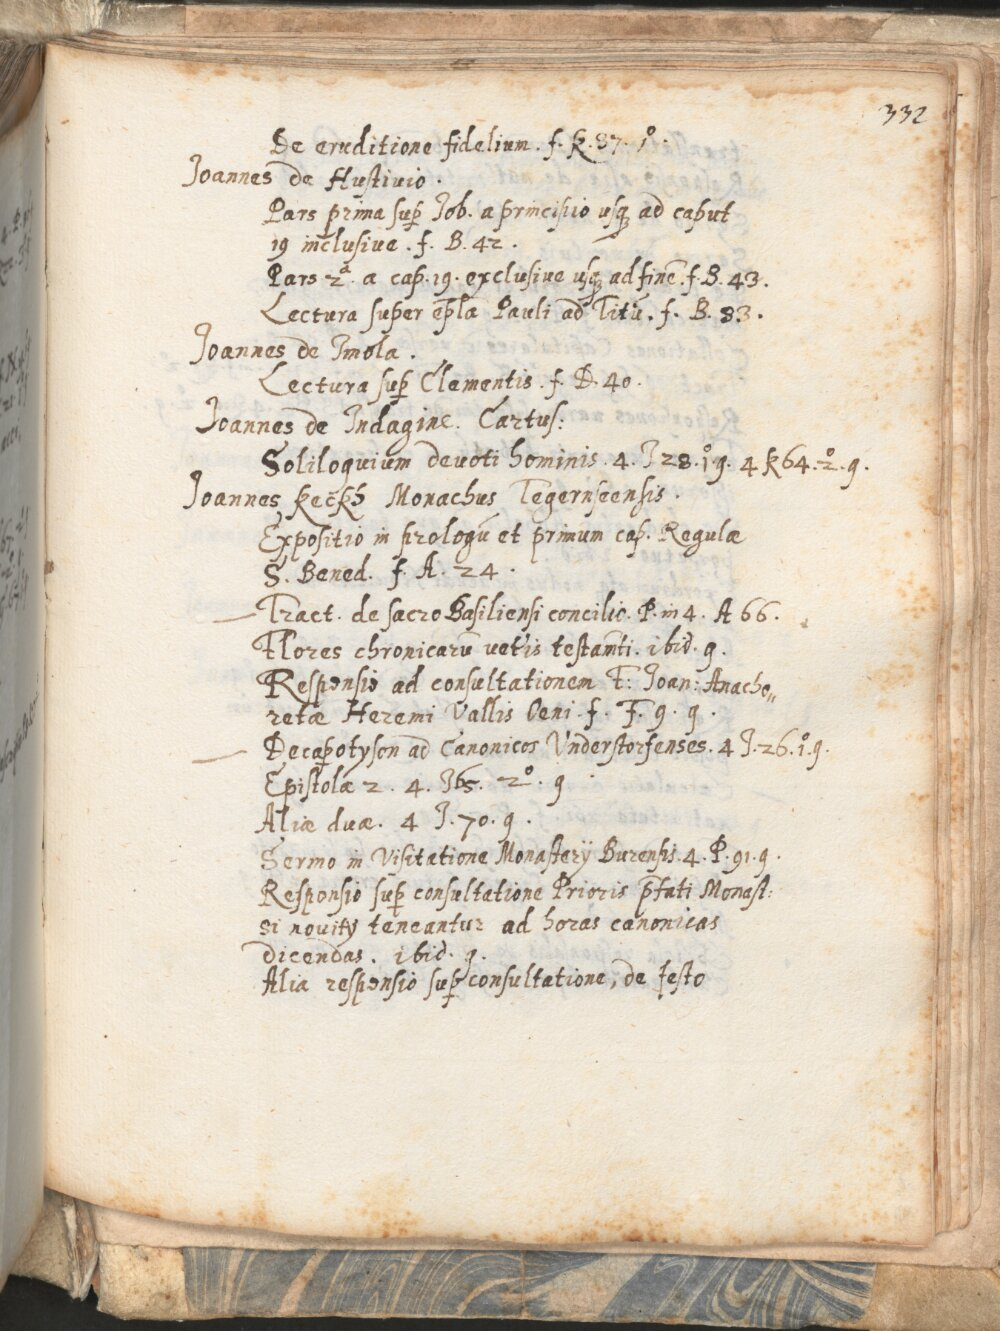 332
De eruditione fidelium. f. K. 37. 1º.
Joannes de Hustinio.
Pars prima sup̱ Job. a principio usq̨ ad caput
19 inclusive. f. B. 42.
Pars 2ª. a cap. 19. exclusive usq̨ ad finē. f. B. 43.
Lectura super ep̄la Pauli ad Titū. f. B. 33.
Joannes de Imola.
Lectura sup̱ Clementis. f. D. 40.
Joannes de Indagine. Cartus:
Soliloquium devoti hominis. 4. J 28. 1º g. 4 K 64. 2º. g.
Joannes Keckh Monachus Tegernseensis.
Expositio in prologū et primum cap. Regulæ
S. Bened. f. A. 24.
Tract. de sacro Basiliensi concilio. P. in 4. A 66.
Flores chronicarū vetis testam̄ti. ibid. g.
Responsio ad consultationem F: Joan: Anacho„
retæ Heremi Vallis Oeni. f. F. 9. g.
Decapotyson ad Canonicos Understorfenses. 4 J. 26. 1º. g.
Epistolæ 2. 4. J 65. 2º. g
Aliæ duæ. 4 J. 70. g.
Sermo in Visitatione Monasterij Burensis. 4. P. 91. g.
Responsio sup̱ consultatione Prioris p̄fati Monast:
si novitij teneantur ad horas canonicas
dicendas. ibid. g.
Alia responsio sup̱ consultatione, de festo